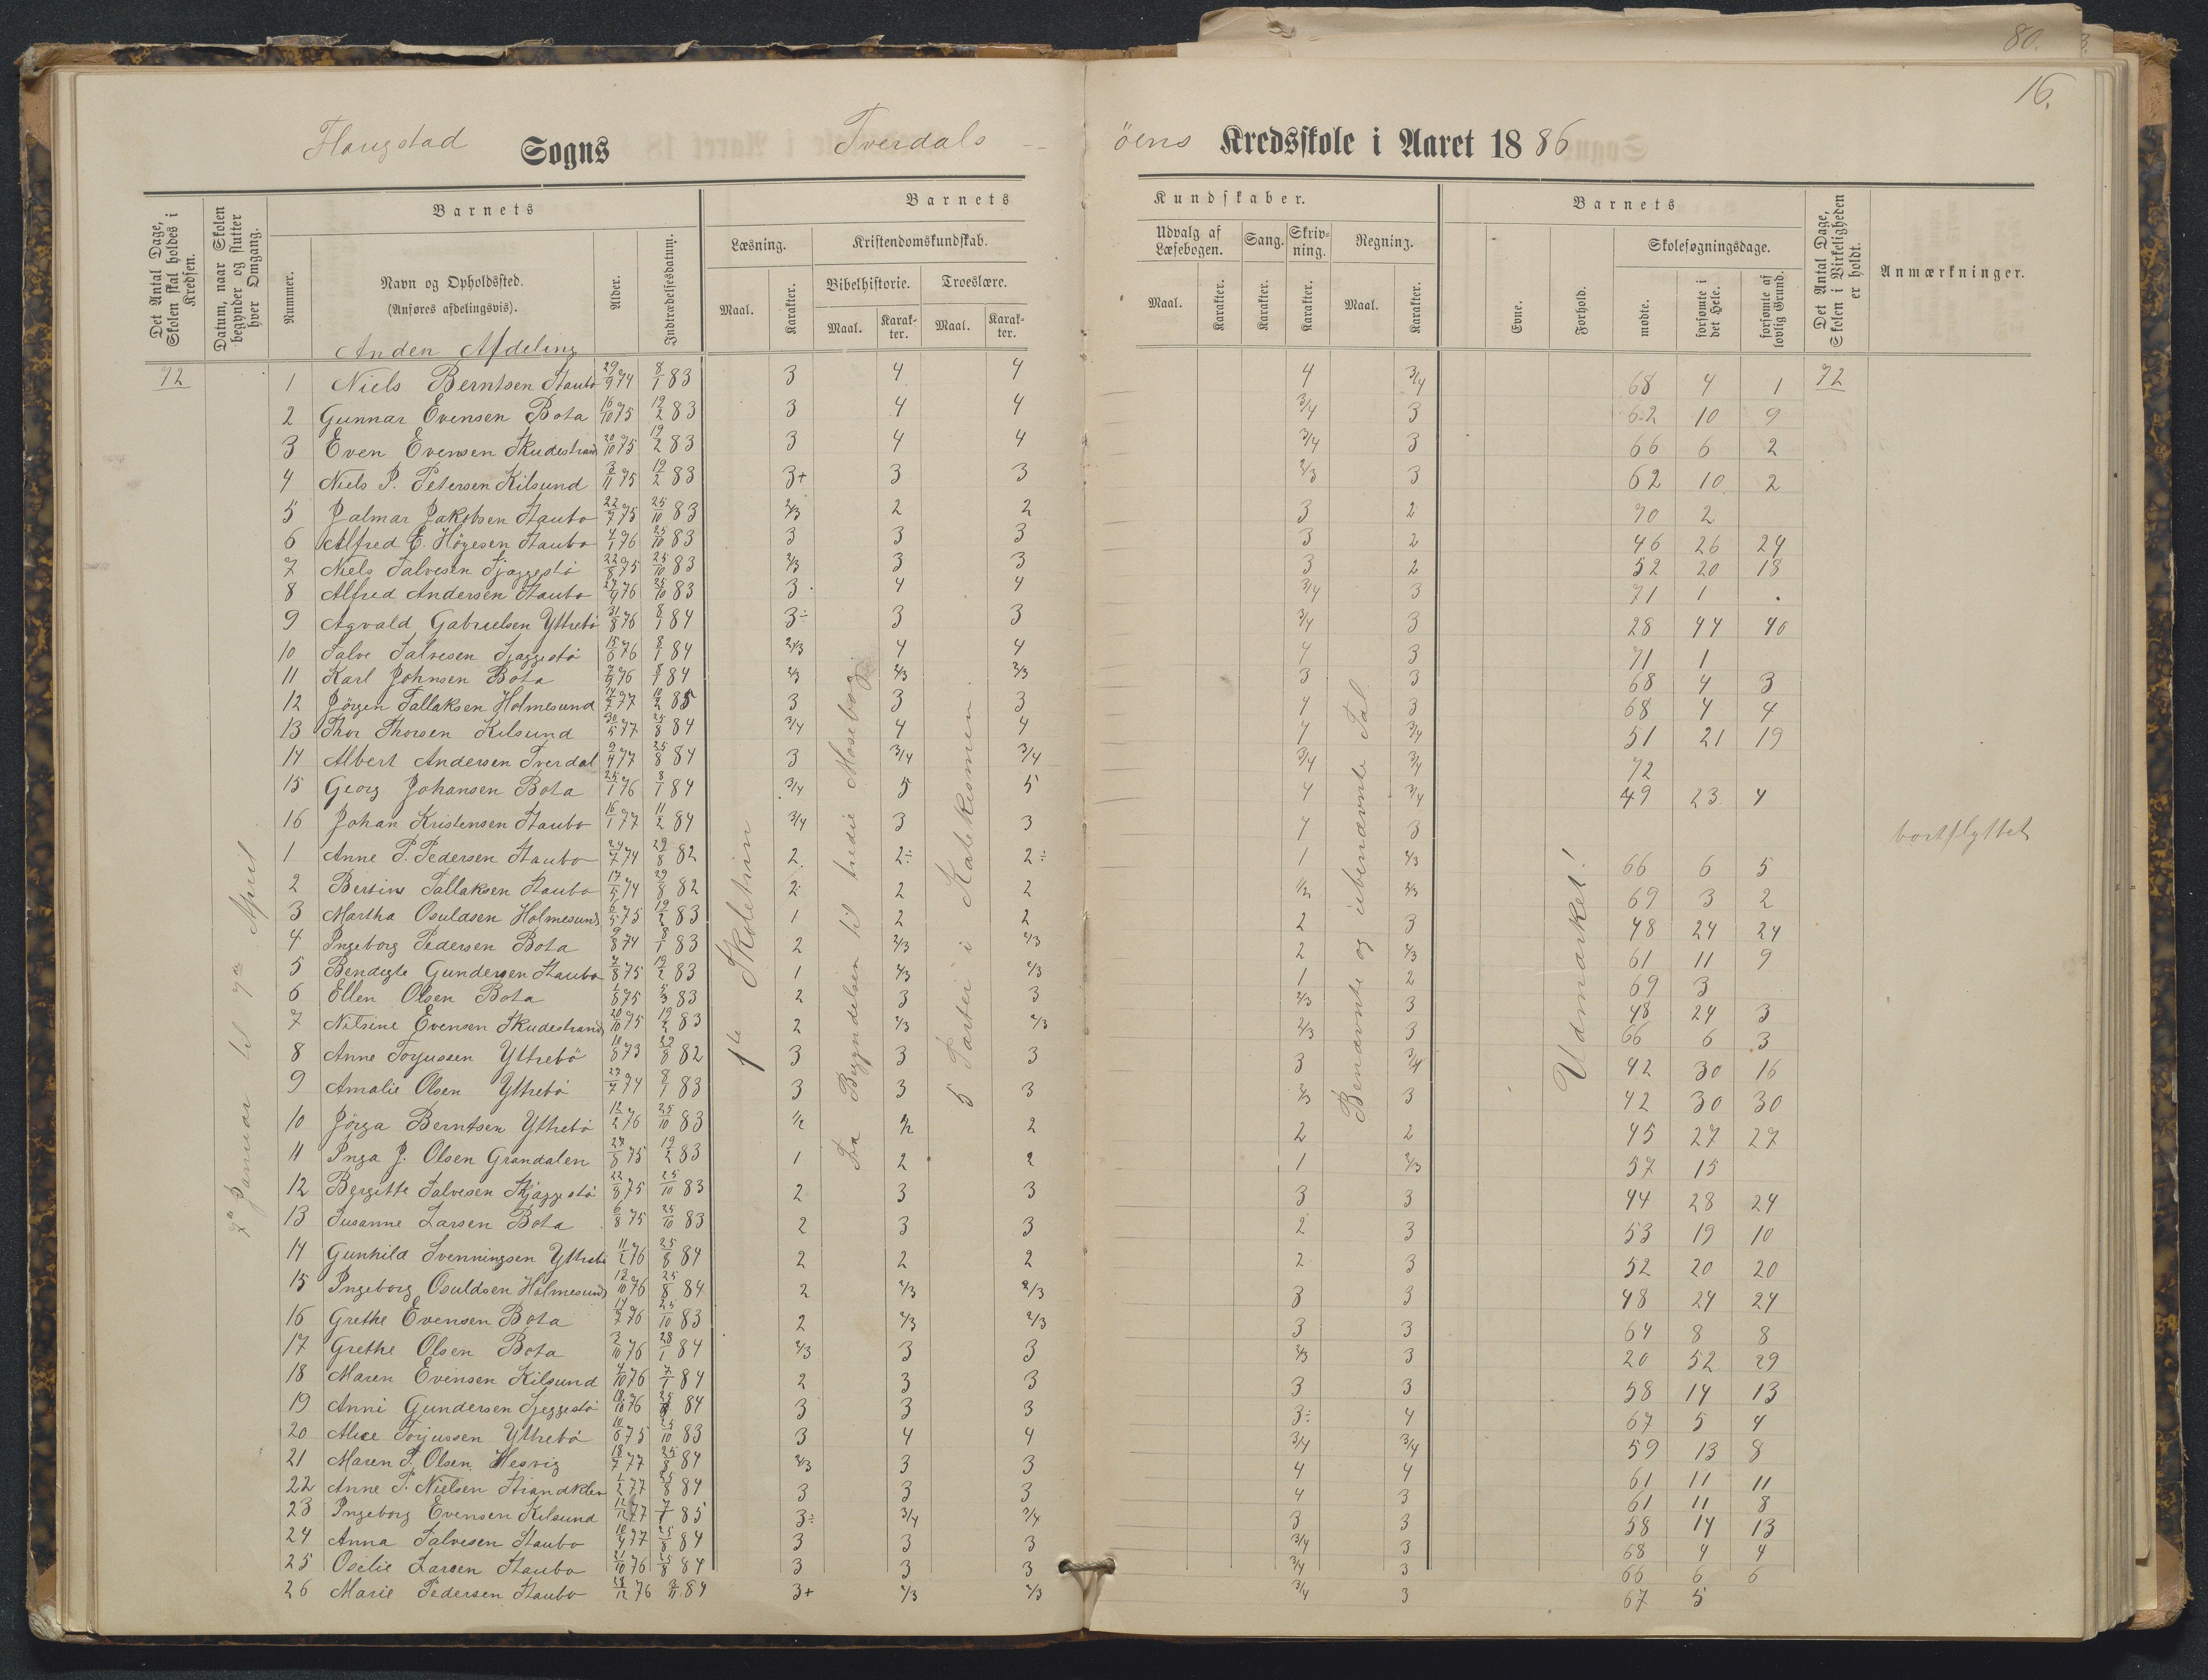 80.
16.
Flangstad Sogns Tverdals - öens Kredsskole i Aaret 1886
Det Antal Dage, Skolen skal holdes i Kredsen.
Datum, naar Skolen begynder og slutter hver Omgang.
Barnets
Nummer.
Navn og Opholdssted.
(Anføres afdelingsvis).
Anden Afdeling
Alder.
Indtrædelsesdatum.
Barnets Kundskaber.
Læsning.
Maal.
Karakter.
Kristendomskundskab.
Bibelhistorie.
Maal.
Karakter.
Troeslære.
Maal.
Karakter.
Udvalg af Læsebogen.
Maal.
Karakter.
Sang.
Karakter.
Skrivning.
Karakter.
Regning.
Maal.
Karakter.
Barnets
Evne.
Forhold.
Skolesøgningsdage.
mødte.
forsømte i det Hele.
forsømte af lovlig Grund.
Det Antal Dage, Skolen i Virkeligheden er holdt.
Anmærkninger.
72
7de Januar til 7de April
1te Skoletrin
Fra Begyndelsen til tredie Mosebog.
5 Parter i Katekismen
Benævnte og ubenævnte Tal
Udmærket!
72
1 Niels Berntsen Staubo 29/9 74 8/1 83 3 4 4 4 3/4 68 4 1
2 Gunnar Evensen Bota 16/10 75 19/2 83 3 4 4 3/4 3 62 10 9
3 Even Evensen Skudestrand 20/10 75 19/2 83 3 4 4 3/4 3 66 6 2
4 Niels P. Petersen Kilsund 3/11 75 19/2 83 3+ 3 3 2/3 3 62 10 2
5 Jalmar Jakobsen Staubo 22/7 75 25/10 83 2/3 2 2 3 2 70 2
6 Alfred E. Höyesen Staubo 4/1 76 25/10 83 3 3 3 3 2 46 26 24
7 Niels Salvesen Sjaggestö 22/8 75 25/10 83 2/3 3 3 3 2 52 20 18
8 Alfred Andersen Staubo 27/9 76 25/10 83 3 4 4 3/4 3 71 1
9 Agvald Gabrielsen Yttrebö 31/8 76 8/1 84 3÷ 3 3 3/4 3 28 44 40
10 Salve Salvesen Sjaggestö 15/6 76 8/1 84 2/3 4 4 4 3 71 1
11 Karl Johnsen Bota 7/9 76 8/1 84 2/3 2/3 2/3 3 3 68 4 3
12 Jörgen Tallaksen Holmesund 14/7 77 10/2 85 3 3 3 4 3 68 4 4
13 Thor Thorsen Kilsund 30/5 77 25/8 84 3/4 4 4 4 3/4 51 21 19
14 Albert Andersen Tverdal 9/4 77 25/8 84 3 3/4 3/4 3/4 3/4 72
15 Georg Johansen Bota 25/1 76 8/1 84 3/4 5 5 4 3/4 49 23 4
16 Johan Kristensen Staubo 16/1 77 11/2 84 3/4 3 3 4 3 bortflyttet
1 Anne P. Pedersen Staubo 24/7 74 29/8 82 2 2÷ 2÷ 1 2/3 66 6 5
2 Bersine Tallaksen Staubo 17/5 74 29/8 82 2 2 2 1/2 2/3 69 3 2
3 Martha Osuldsen Holmesund 6/5 75 19/2 83 1 2 2 2 3 48 24 24
4 Ingeborg Pedersen Bota 9/8 74 8/1 83 2 2/3 2/3 2 2/3 61 11 9
5 Bendigte Gundersen Staubo 4/8 75 19/2 83 1 2/3 2/3 1 2 69 3
6 Ellen Olsen Bota 1/8 75 5/3 83 2 3 3 2/3 3 48 24 3
7 Nilsine Evensen Skudestrand 20/10 75 19/2 83 2 2/3 2/3 2/3 3 66 6 3
8 Anne Torjussen Yttrebö 18/8 73 29/8 82 3 3 3 3 3/4 42 30 16
9 Amalie Olsen Yttrebö 23/7 74 8/1 83 3 3 3 2/3 3 42 30 30
10 Jörga Berntsen Yttrebö 12/2 76 25/10 83 1/2 1/2 2 2 2 45 27 27
11 Inga J. Olsen Grandalen 28/8 75 19/2 83 1 2 2 1 2/3 57 15
12 Bergitte Salvesen Skjaggestö 22/8 75 25/10 83 2 3 3 3 3 44 28 24
13 Susanne Larsen Bota 6/8 75 25/10 83 2 3 3 2 3 53 19 10
14 Gunhild Svenningsen Yttrebö 11/2 76 25/8 84 2 2 2 2 3 52 20 20
15 Ingeborg Osuldsen Holmesund 13/10 76 25/8 84 2 2/3 2/3 3 3 48 24 24
16 Grethe Evensen Bota 17/7 76 25/10 83 2 2/3 2/3 3 3 64 8 8
17 Grethe Olsen Bota 3/10 76 28/1 84 2/3 3 3 2/3 3 20 52 29
18 Maren Evensen Kilsund 4/10 76 7/1 84 2 3 3 3 3 58 14 13
19 Anni Gundersen Sjeggestö 18/10 76 25/8 84 3 3 3 3÷ 4 67 5 4
20 Alice Torjussen Yttrebö 10/6 75 25/10 83 3 4 4 3/4 3/4 59 13 8
21 Maren T. Olsen Hesvig 18/7 77 25/8 84 2/3 3 3 4 4 61 11 11
22 Anne P. Nielsen Strandklev 1/2 77 25/8 84 3 3 3 4 3 61 11 8
23 Ingeborg Evensen Kilsund 12/12 77 7/1 85 3÷ 3/4 3/4 3 3 58 14 13
24 Anna Salvesen Staubo 10/4 77 25/8 84 3 3 3 3/4 3 68 4 4
25 Osilie Larsen Staubo 21/10 76 25/8 84 3 3 3 3/4 3 66 6 6
26 Marie Pedersen Staubo 28/12 76 3/11 84 3+ 2/3 2/3 3/4 3 67 5